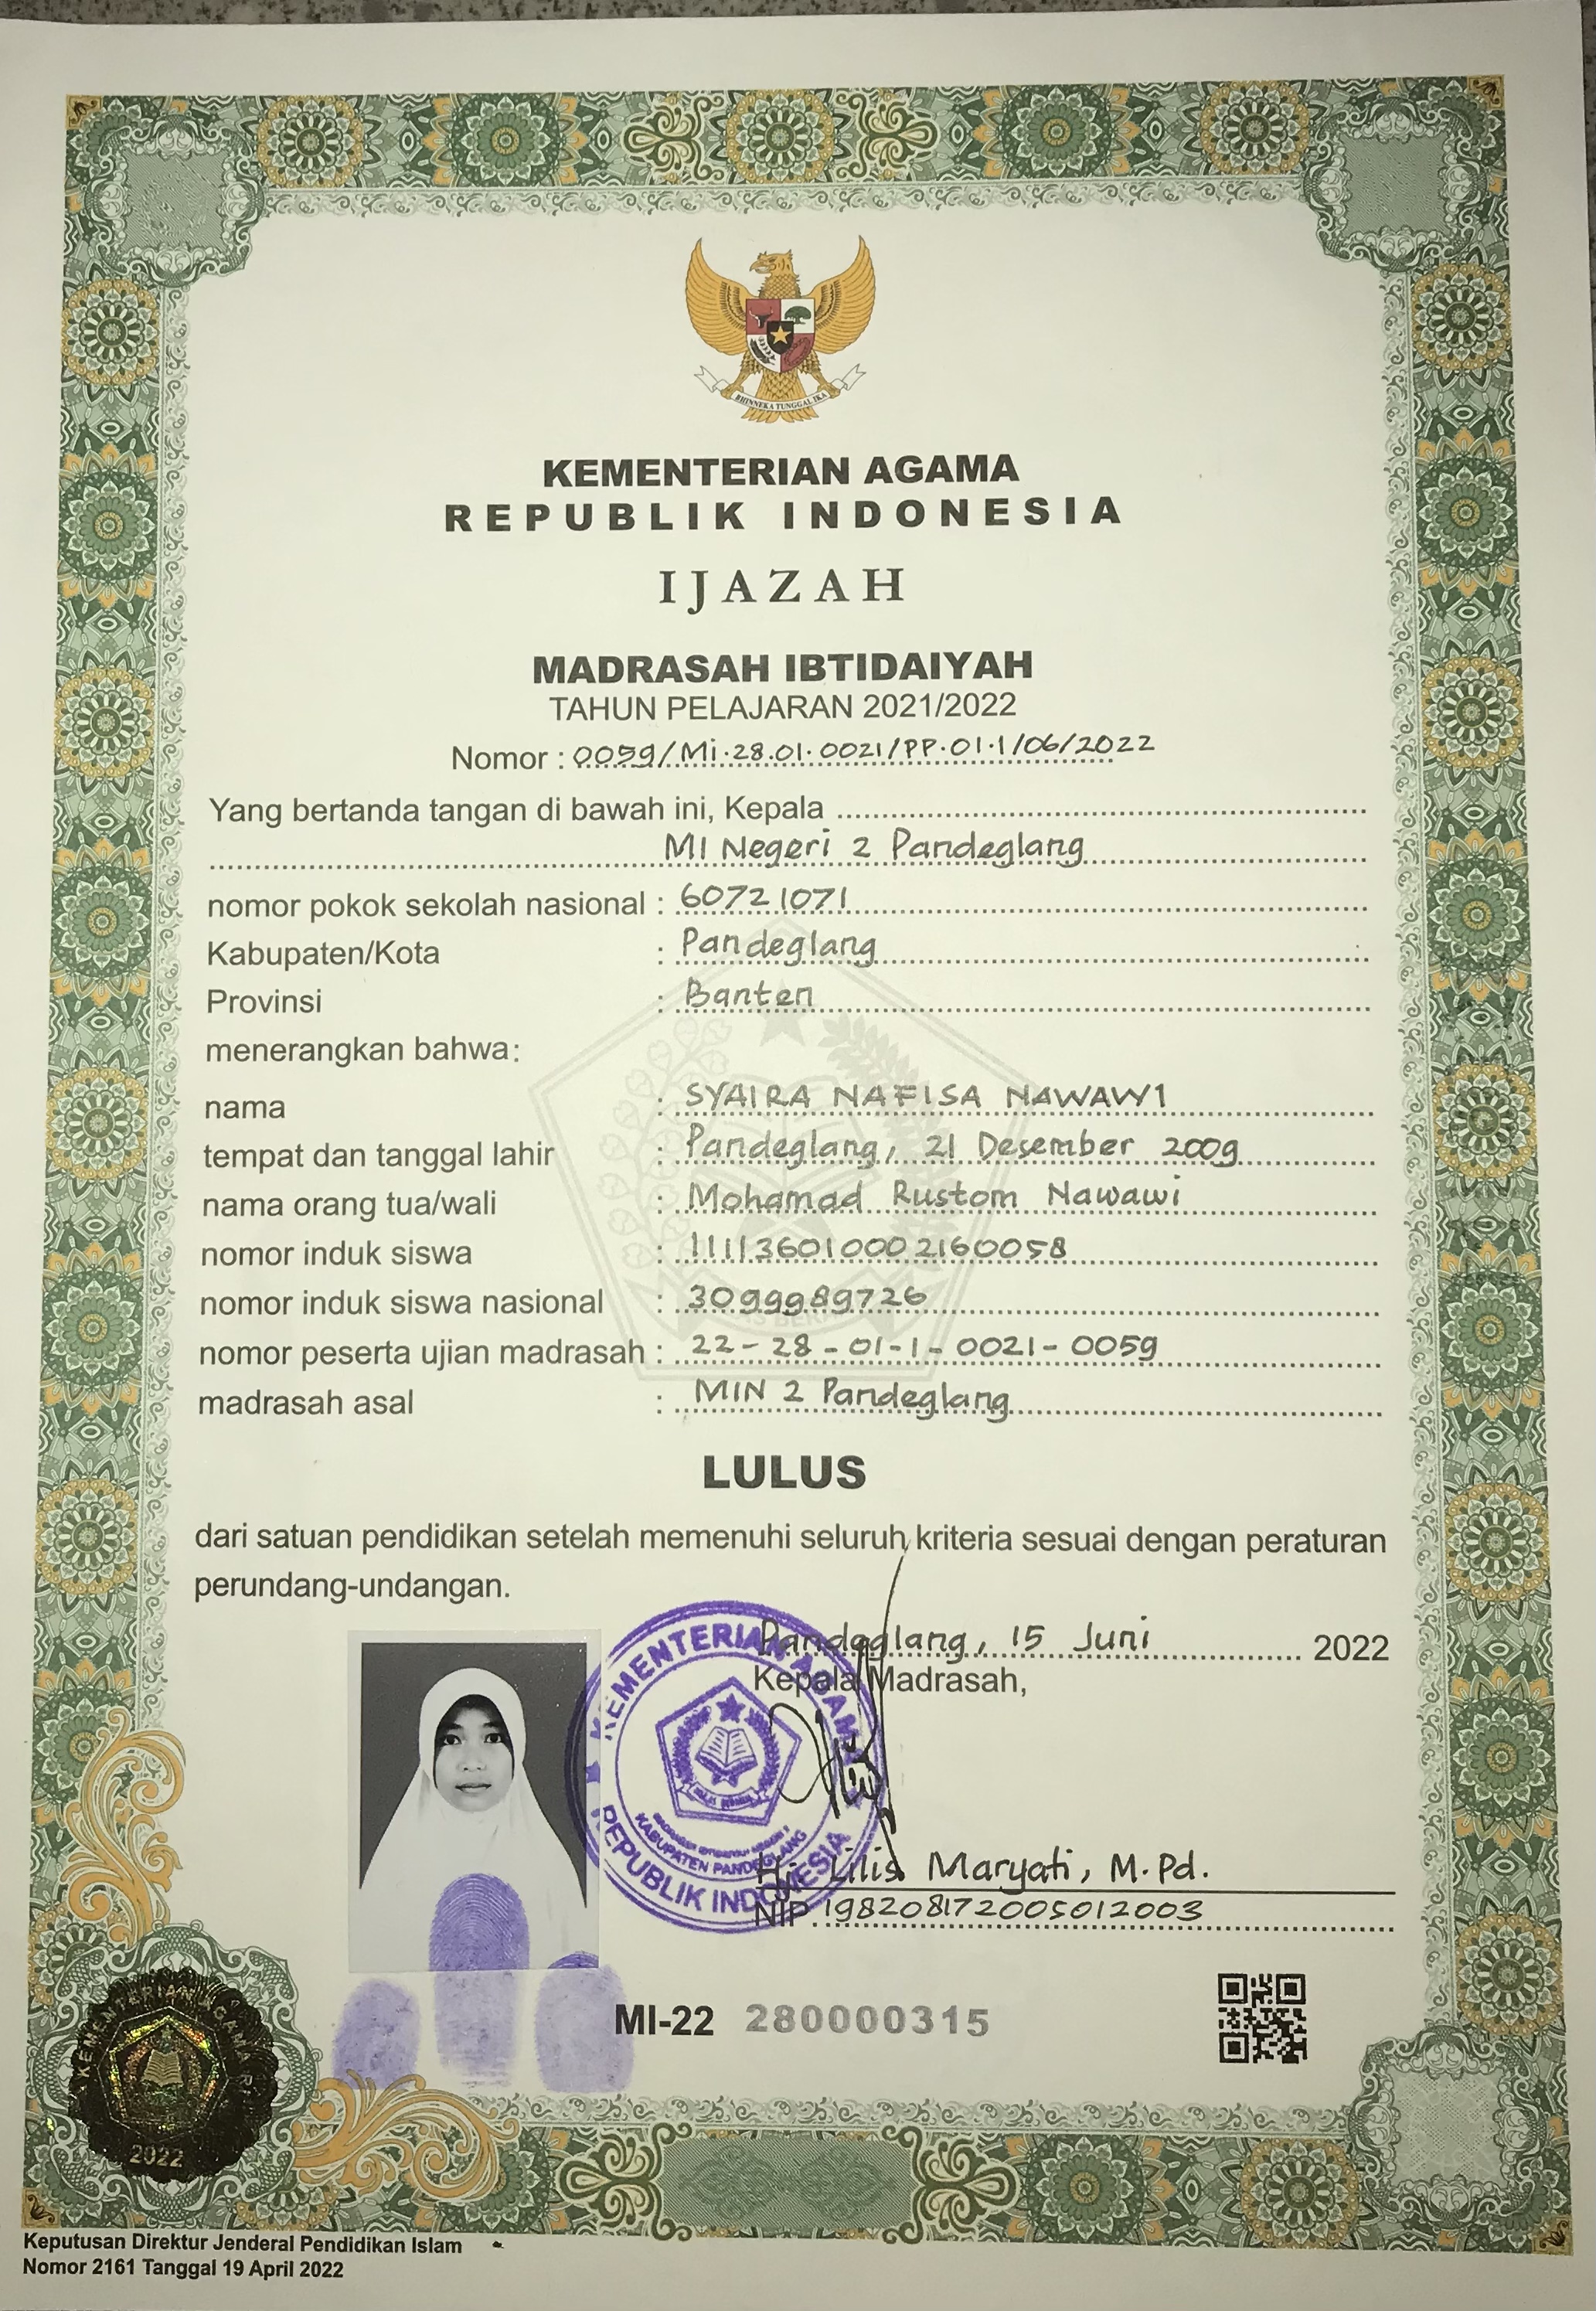 BHINNEKA TUNGGAL IKA
KEMENTERIAN AGAMA
REPUBLIK INDONESIA
IJAZAH
MADRASAH IBTIDAIYAH
TAHUN PELAJARAN 2021/2022
Nomor : 0059/Mi.28.01.0021/PP.01.1/06/2022
Yang bertanda tangan di bawah ini, Kepala
MI Negeri 2 Pandeglang
nomor pokok sekolah nasional : 60721071
Kabupaten/Kota : Pandeglang
Provinsi : Banten
menerangkan bahwa:
nama : SYAIRA NAFISA NAWAWI
tempat dan tanggal lahir : Pandeglang, 21 Desember 2009
nama orang tua/wali : Mohamad Rustom Nawawi
nomor induk siswa : 111136010002160058
nomor induk siswa nasional : 3099989726
nomor peserta ujian madrasah : 22-28-01-1-0021-0059
madrasah asal : MIN 2 Pandeglang
LULUS
dari satuan pendidikan setelah memenuhi seluruh kriteria sesuai dengan peraturan
perundang-undangan.
Pandeglang, 15 Juni 2022
Kepala Madrasah,
KEMENTERIAN AGAMA
KABUPATEN PANDEGLANG
REPUBLIK INDONESIA
Hj. Lilis Maryati, M.Pd.
NIP. 198208172005012003
MI-22 280000315
KEMENTERIAN AGAMA RI
2022
Keputusan Direktur Jenderal Pendidikan Islam
Nomor 2161 Tanggal 19 April 2022